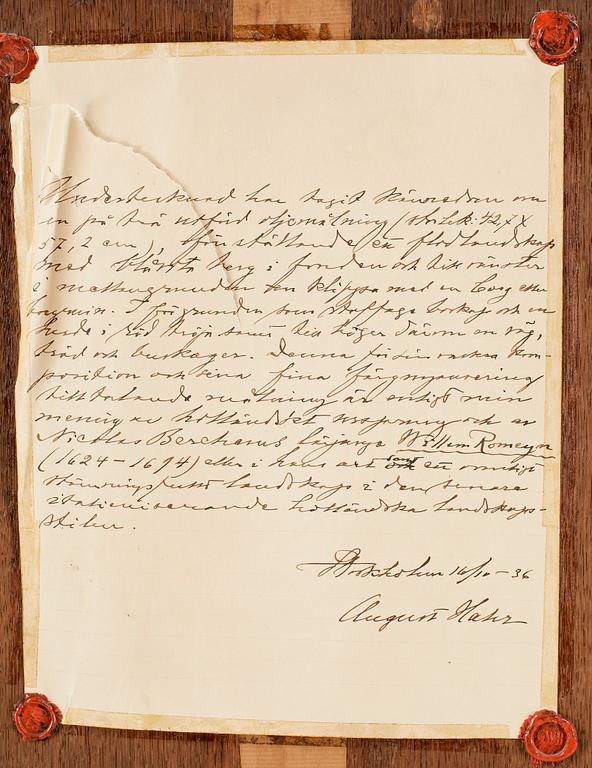 Undertecknad har tagit kännedom om
en på trä utförd oljemålning (storlek: 42,7 X
57,2 cm), föreställande en flodlandskap
med blånande berg i fonden och till vänster
i mellangrunden en klippa med en borg eller
I förgrunden som staffage boskap och en
herde i röd tröja samt till höger därom en väg,
träd och buskager. Denna för sin vackra kom-
position och sina fina färgnyansering
tilltalande målning är enligt min
mening av holländskt ursprung och av
Nicolas Berchems lärjunge Willem Romeyn
(1624-1694) eller i hans art samt en
stämningsfullt landskap i den senare
italieniserande holländska landskaps-
stilen.
Stockholm 16/10-36
August Hahr